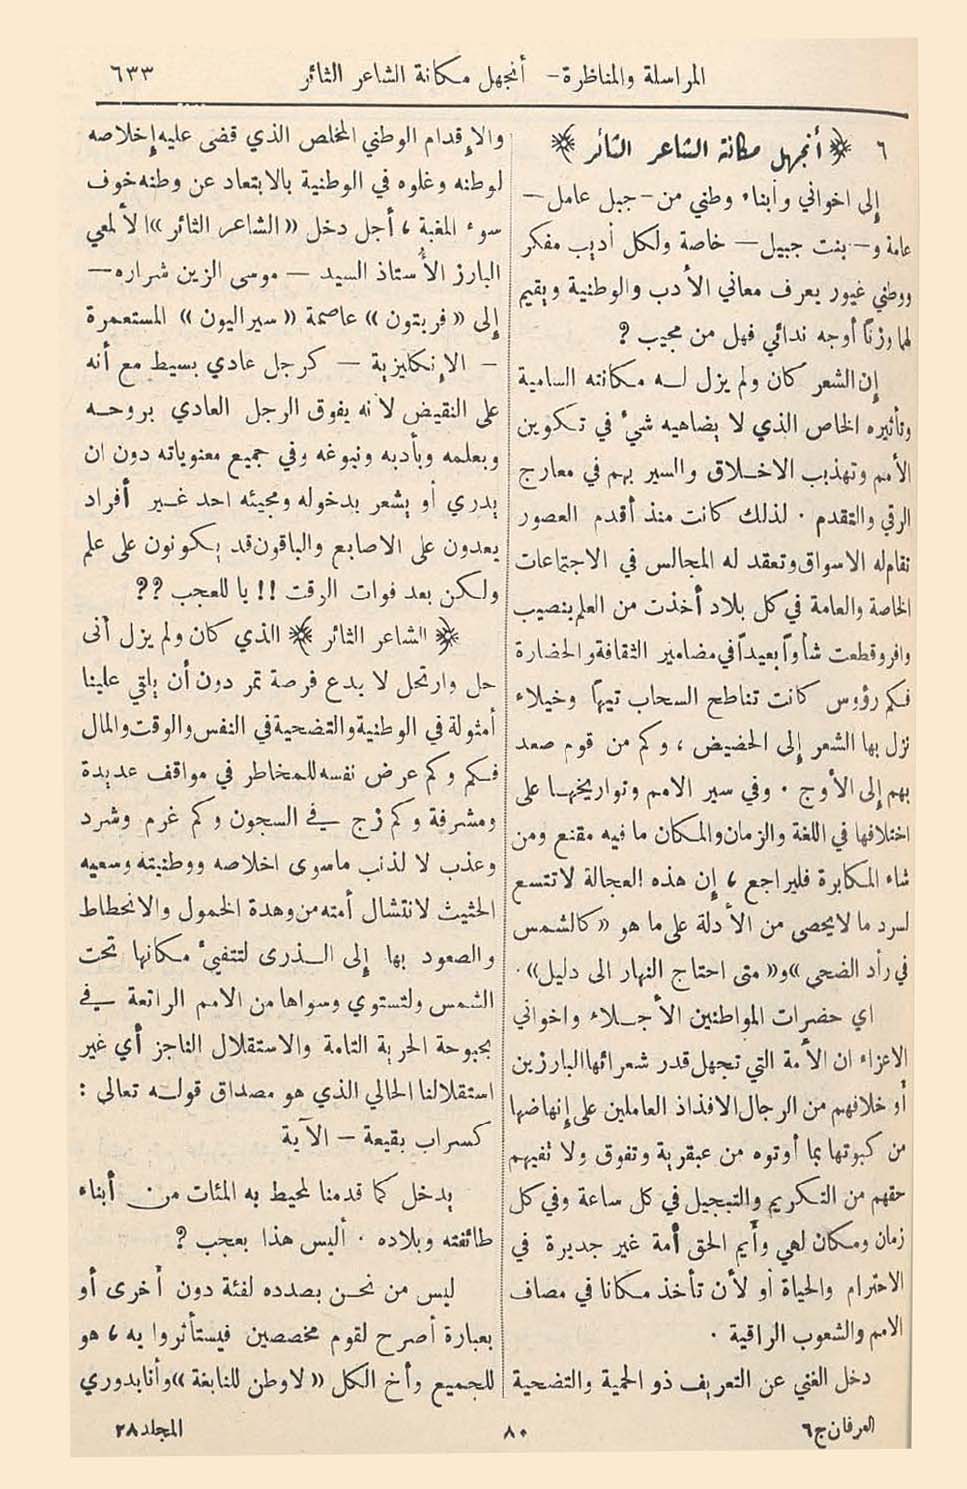 المراسلة والمناظرة - أنجهل مكانة الشاعر الثائر
٦٣٣
٦ ﴿ أنجهل مكانة الشاعر الثائر ﴾
إلى اخواني وأبناء وطني من - جبل عامل -
عامة و - بنت جبيل - خاصة ولكل أديب مفكر
ووطني غيور يعرف معاني الأدب والوطنية ويقيم
لها وزناً أوجه ندائي فهل من مجيب ؟
إن الشعر كان ولم يزل له مكانته السامية
وتأثيره الخاص الذي لا يضاهيه شيء في تكوين
الأمم وتهذيب الاخلاق والسير بهم في معارج
الرقي والتقدم . لذلك كانت منذ أقدم العصور
تقام له الاسواق وتعقد له المجالس في الاجتماعات
الخاصة والعامة في كل بلاد أخذت من العلم بنصيب
وافر وقطعت شأواً بعيداً في مضامير الثقافة والحضارة
فكم رؤوس كانت تناطح السحاب تيهاً وخيلاء
نزل بها الشعر إلى الحضيض ، وكم من قوم صعد
بهم إلى الأوج . وفي سير الامم وتواريخها على
اختلافها في اللغة والزمان والمكان ما فيه مقنع ومن
شاء المكابرة فليراجع ، إن هذه العجالة لا تتسع
لسرد ما لا يحصى من الأدلة على ما هو « كالشمس
في رأد الضحى » و« متى احتاج النهار الى دليل » .
اي حضرات المواطنين الأجلاء واخواني
الاعزاء ان الأمة التي تجهل قدر شعرائها البارزين
أو خلافهم من الرجال الافذاذ العاملين على إنهاضها
من كبوتها بما أوتوه من عبقرية وتفوق ولا تفيهم
حقهم من التكريم والتبجيل في كل ساعة وفي كل
زمان ومكان لهي وأيم الحق أمة غير جديرة في
الاحترام والحياة أو لأن تأخذ مكانا في مصاف
الامم والشعوب الراقية .
دخل الغني عن التعريف ذو الحمية والتضحية
والإقدام الوطني المخلص الذي قضى عليه إخلاصه
لوطنه وغلوه في الوطنية بالابتعاد عن وطنه خوف
سوء المغبة ، أجل دخل « الشاعر الثائر » الألمعي
البارز الأستاذ السيد - موسى الزين شراره -
إلى « فريتون » عاصمة « سيراليون » المستعمرة
- الإنكليزية - كرجل عادي بسيط مع أنه
على النقيض لأنه يفوق الرجل العادي بروحه
وبعلمه وبأدبه ونبوغه وفي جميع معنوياته دون ان
يدري أو يشعر بدخوله ومجيئه احد غير أفراد
يعدون على الاصابع والباقون قد يكونون على علم
ولكن بعد فوات الوقت !! يا للعجب ؟؟
﴿ الشاعر الثائر ﴾ الذي كان ولم يزل أنى
حل وارتحل لا يدع فرصة تمر دون أن يلقي علينا
أمثولة في الوطنية والتضحية في النفس والوقت والمال
فكم وكم عرض نفسه للمخاطر في مواقف عديدة
ومشرفة وكم زج في السجون وكم غرم وشرد
وعذب لا لذنب ما سوى اخلاصه ووطنيته وسعيه
الحثيث لانتشال أمته من وهدة الخمول والانحطاط
والصعود بها إلى الذرى لتتفيء مكانها تحت
الشمس ولتستوي وسواها من الامم الراتعة في
بحبوحة الحرية التامة والاستقلال الناجز أي غير
استقلالنا الحالي الذي هو مصداق قوله تعالى :
كسراب بقيعة - الآية
يدخل كما قدمنا لمحيط به المئات من أبناء
طائفته وبلاده . أليس هذا بعجب ؟
ليس من نحن بصدده لفئة دون أخرى أو
بعبارة أصرح لقوم مخصصين فيستأثروا به ، هو
للجميع وأخ الكل « لا وطن للنابغة » وأنا بدوري
العرفان ج٦
٨٠
المجلد ٢٨